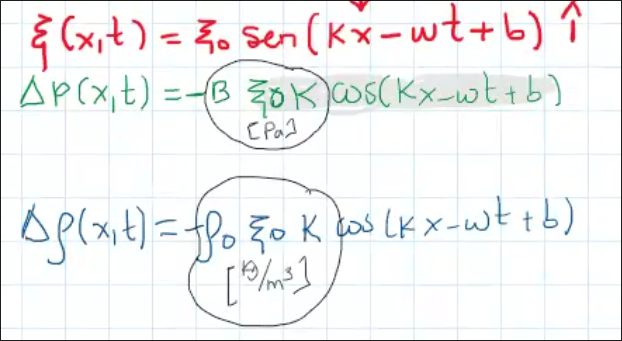 ξ(x,t) = ξ₀ sen(Kx-wt+b) î
ΔP(x,t) = -B ξ₀ K cos(Kx-wt+b)
[Pa]
Δρ(x,t) = -ρ₀ ξ₀ K cos(Kx-wt+b)
[kg/m³]